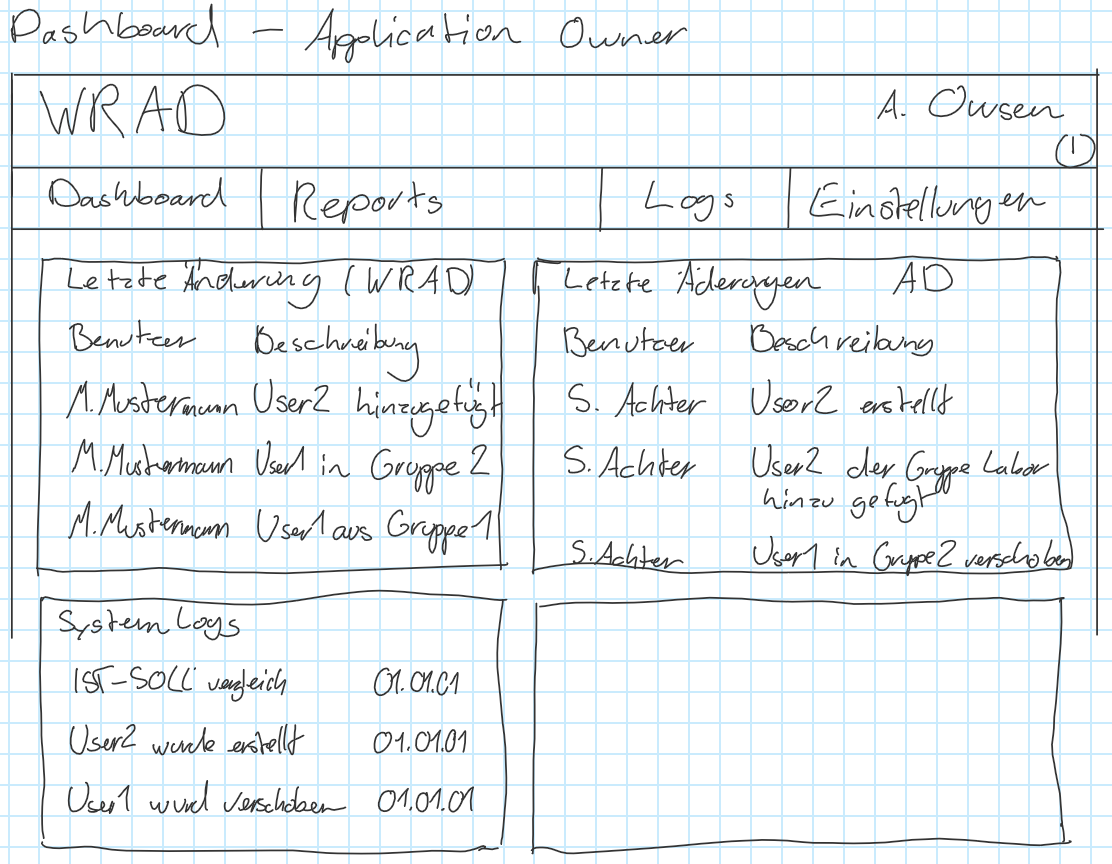 Dashboard – Application Owner
WRAD
A. Owsen
1
Dashboard Reports Logs Einstellungen
Letzte Änderung (WRAD)
Benutzer Beschreibung
M.Mustermann User2 hinzugefügt
M.Mustermann User1 in Gruppe 2
M.Mustermann User1 aus Gruppe1
Letzte Äderungen AD
Benutzer Beschreibung
S. Achter User2 erstellt
S. Achter User2 der Gruppe Labor
hinzu gefügt
S.Achter User1 in Gruppe2 verschoben
System Logs
IST-SOLL vergleich 01.01.01
User2 wurde erstellt 01.01.01
User1 wurd verschoben 01.01.01